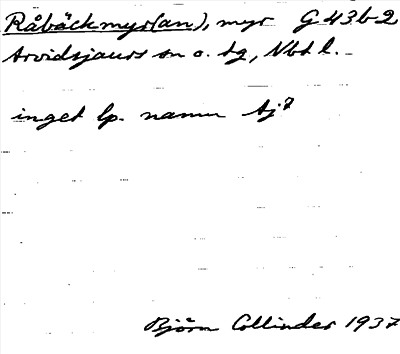 Råbäckmyr(an), myr G 43 b 2
Arvidsjaurs sn o. tg, Nbt l.
inget lp. namn Aj?
Björn Collinder 1937